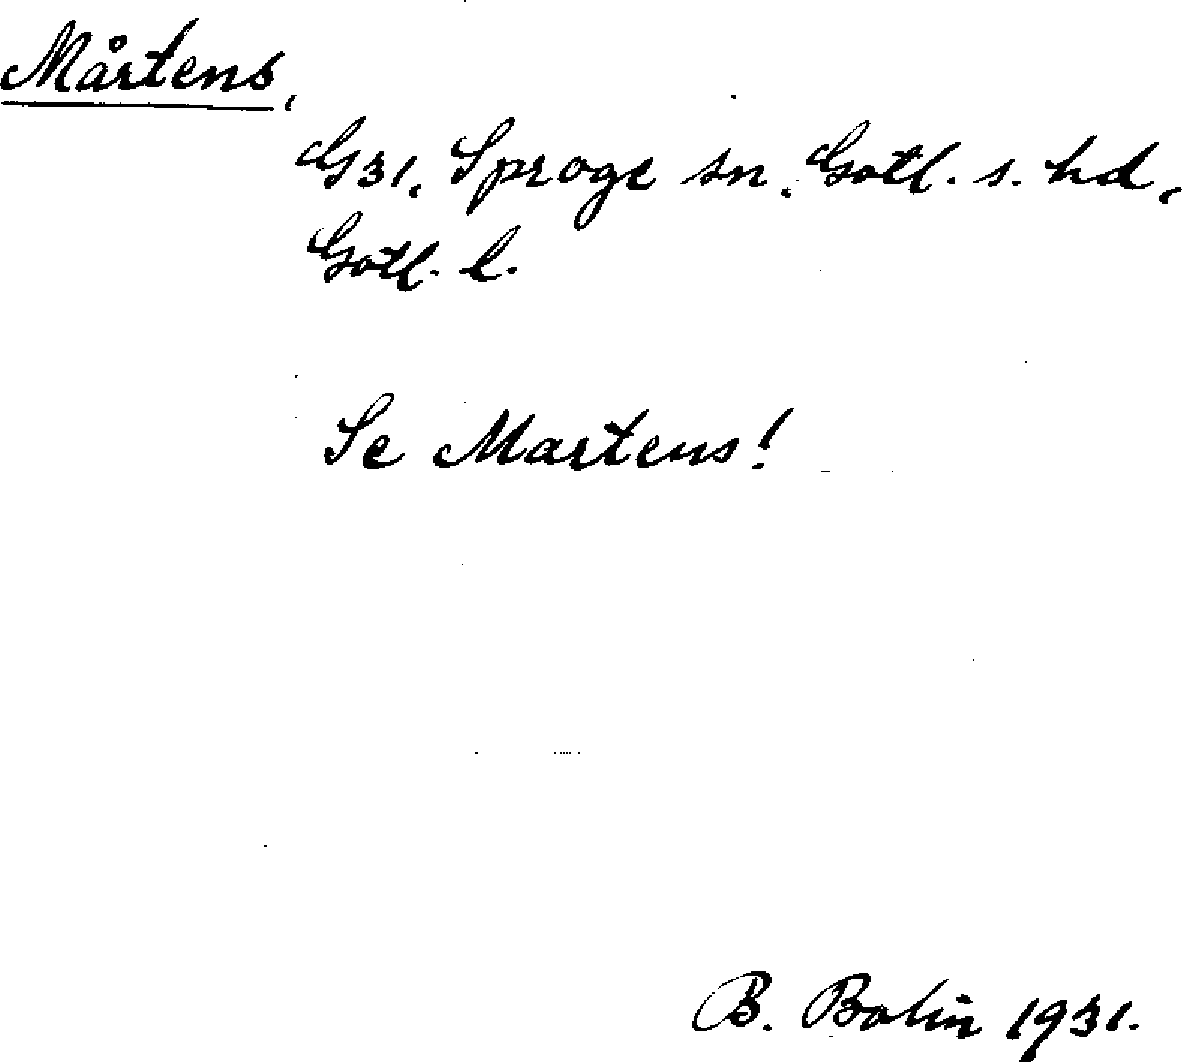 Mårtens,
G31, Sproge sn, Gotl. s. hd,
Gotl. l.
Se Martens!
B. Bolin 1931.